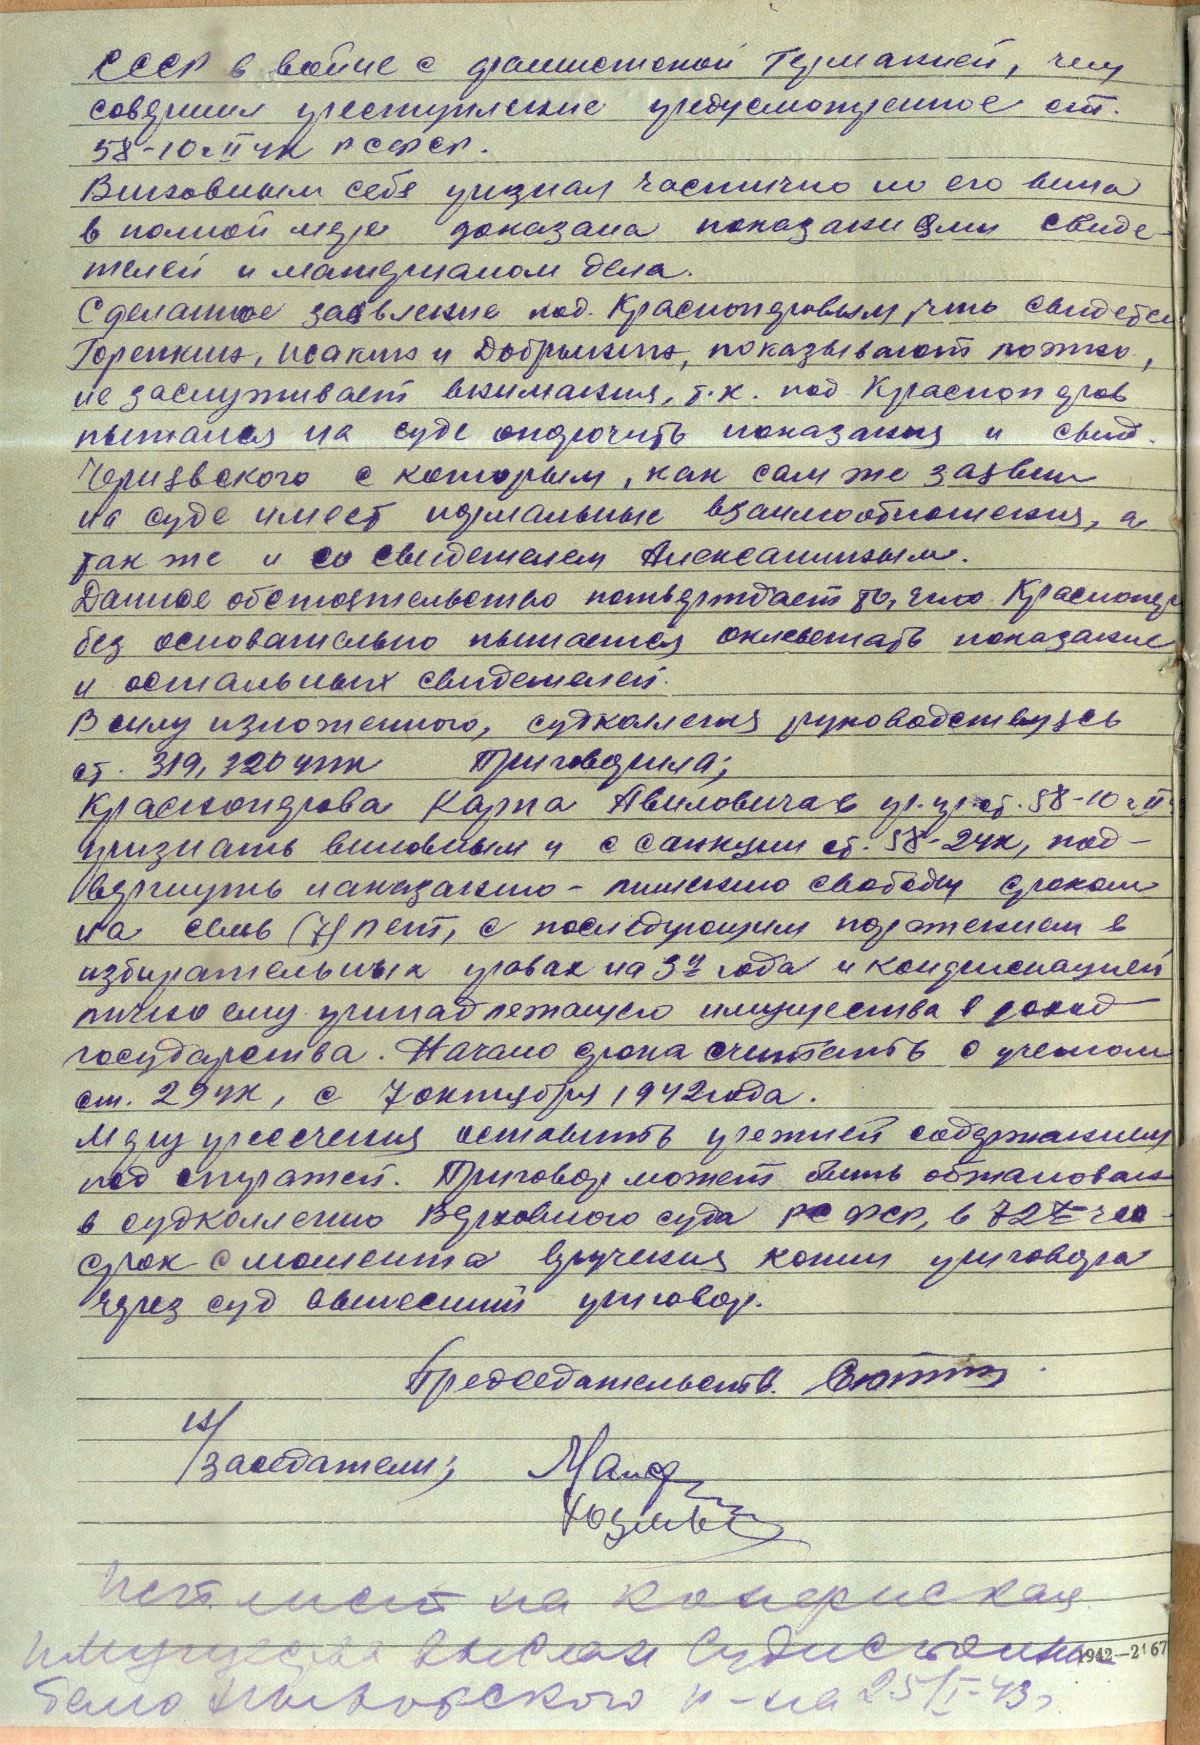 СССР в войне с фашистской Германией, чем
совершил преступление предусмотренное ст.
58-10 ч II УК РСФСР.
Виновным себя признал частично но его вина
в полной мере доказана показаниями свиде-
телей и материалом дела.
Сделанное заявление под. Краснопдровым, что свидетели
Горенкин, Исакин и Добрынин, показывают ложно,
не заслуживает внимания, т.к. под. Красно
пытался на суде опорочить показания и свид.
с которым, как сам же заявил
на суде имеет нормальные взаимоотношения, а
так же и со свидетелем
Данное обстоятельство потверждает то, что
без основательно пытается оклеветать показание
и остальных свидетелей.
В силу изложенного, судколлегия руководствуясь
ст. 319, 320 УПК Приговорила;
Карпа Авиловича в пр. пр. ст. 58-10 ч II
признать виновным и с санкции ст. 58-2 УК, под-
вергнуть наказанию - лишению свободы сроком
на семь (7) лет, с последующим поражением в
избирательных правах на 3 года и конфискацией
лично ему принадлежащего имущества в доход
государства. Начало срока считать с учетом
ст. 29 УК, с 7 октября 1942 года.
Меру пресечения оставить прежней содержанием
под стражей. Приговор может быть обжалован
в судколлегию Верховного суда РСФСР, в 72х час
срок с момента вручения копии приговора
через суд вынесший приговор.
Председательств.
н/заседатели;
Исп. лист на конфиская
имущества выслан Судисполнит
р-на 25/I-43г.
1942-2167